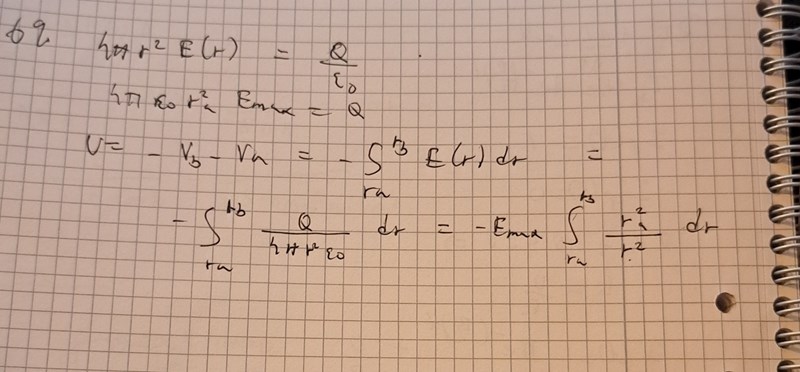 62
4πr² E(r) = Q/ε₀
4π ε₀ rₐ² Emax = Q
U = - V_b - Vₐ = - ∫_{ra}^{rb} E(r) dr =
- ∫_{ra}^{rb} Q/(4πr² ε₀) dr = - Emax ∫_{ra}^{rb} rₐ²/r² dr